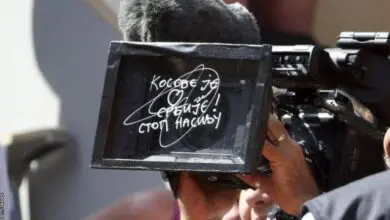 КОСОВО ЈЕ
♡ СРБИЈЕ!
СТОП НАСИЉУ